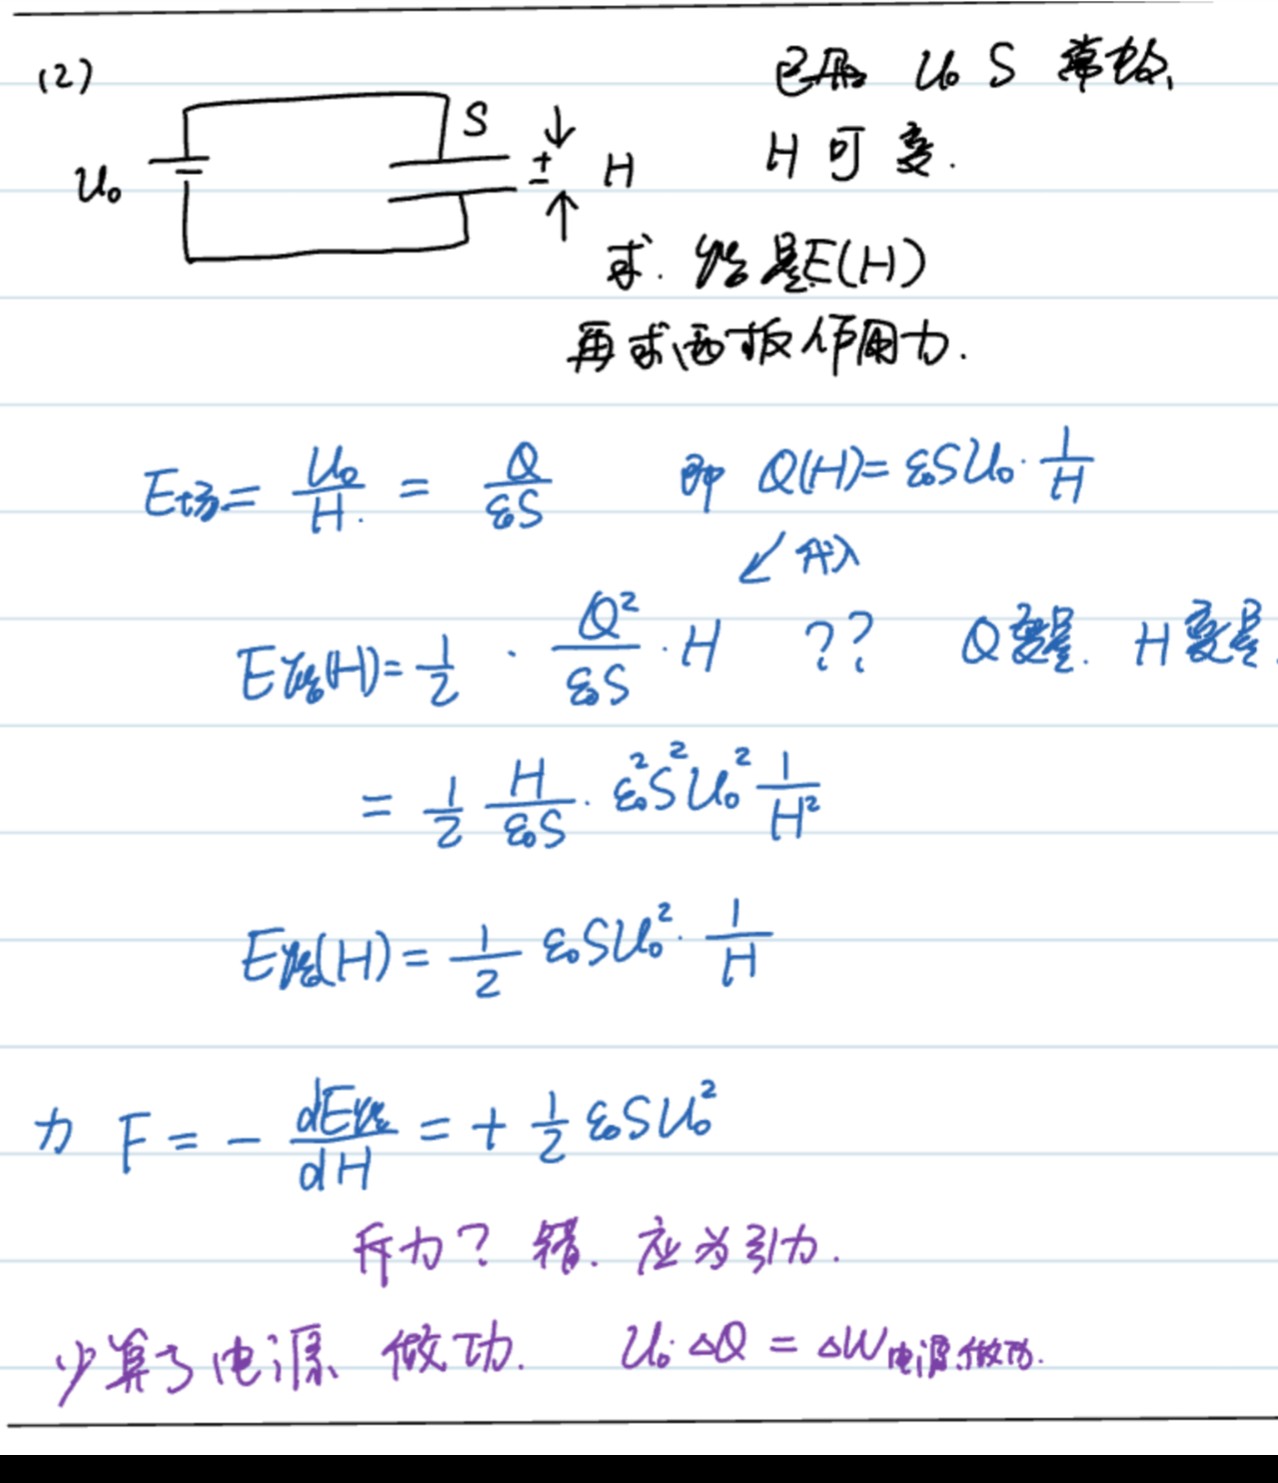 (2)
U₀ S ± H
已知 U₀ S 常数,
H 可变.
求. 能量E(H)
再求两板作用力.
E场 = U₀/H. = Q/ε₀S 即 Q(H)= ε₀SU₀·1/H
↙ 代入
E能(H)= 1/2 · Q²/ε₀S · H ?? Q变量. H变量.
= 1/2 H/ε₀S · ε₀²S²U₀² 1/H²
E能(H) = 1/2 ε₀SU₀² · 1/H
力 F = - dE能/dH = + 1/2 ε₀SU₀²
斥力? 错. 应为引力.
少算了电源 做功. U₀·ΔQ = ΔW电源做功.